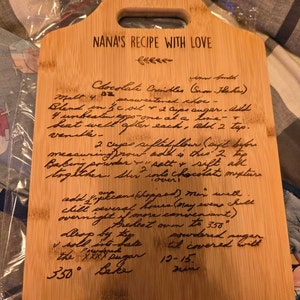 NANA'S RECIPE WITH LOVE
Chocolate Crinkles (from
Melt 4 oz unsweetened choc -
Blend in ½ c oil & 2 cups sugar. Add
4 unbeaten eggs one at a time &
beat well after each, Add 2 tsp.
vanilla -
2 cups sifted flour (sift before
measuring) 2 tsp
Baking powder & salt - sift all
together. Stir into chocolate mixture
add pecans (chopped) Mix well
chill several hours (may even chill
overnight if more convenient)
Preheat oven to 350°
drop by tsp powdered sugar
& roll into balls til covered with
the sugar 12-15
350° Bake min